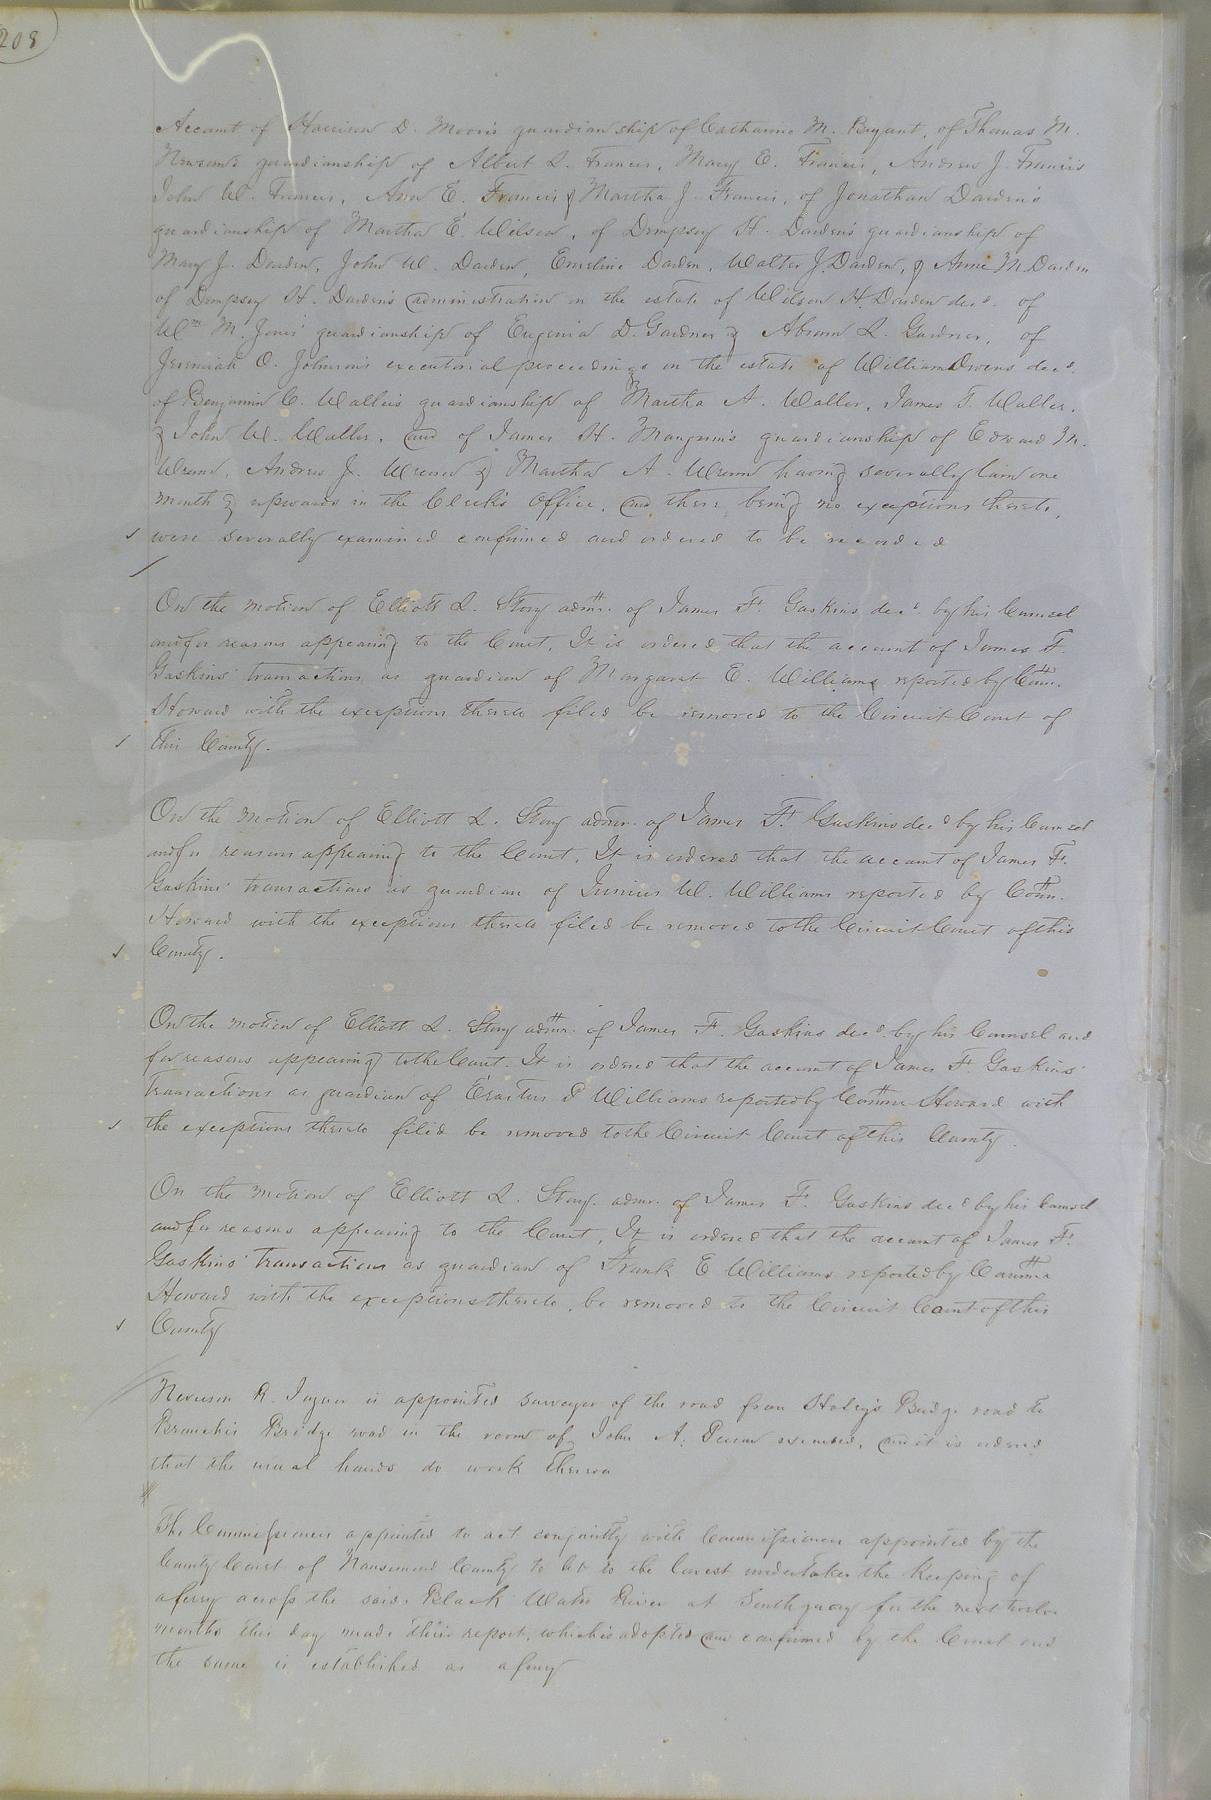 208
Account of Harrison D. Moore's guardianship of Catharine M. Bryant, of Thomas M.
Newsom's guardianship of Albert L. Francis, Mary E. Francis, Andrew J. Francis
John W. Francis, Ann E. Francis & Martha J. Francis, of Jonathan Darden's
guardianship of Martha E. Wilson, of Dempsey H. Darden's guardianship of
Mary J. Darden, John W. Darden, Emeline Darden, Walter J. Darden, & Annie M. Darden
of Dempsey H. Darden's administration on the estate of Wilson H. Darden decd. of
Wm. M. Jones' guardianship of Eugenia D. Gardner & Abram L. Gardner, of
Jeremiah O. Johnson's executorial proceedings on the estate of William Owens decd.
of Benjamin C. Waller's guardianship of Martha A. Waller, James T. Waller,
& John W. Waller, and of James H. Mangum's guardianship of Edward M.
Wrenn, Andrew J. Wrenn & Martha A. Wrenn having severally lain one
month & upwards in the Clerk's Office, and there being no exceptions thereto,
were severally examined confirmed and ordered to be recorded
On the motion of Elliott L. Story admr. of James F. Gaskins decd. by his Counsel
and for reasons appearing to the Court, It is ordered that the account of James F.
Gaskins' transactions as guardian of Margaret E. Williams reported by Comr.
Howard with the exceptions thereto filed be removed to the Circuit Court of
this County.
On the motion of Elliott L. Story admr. of James F. Gaskins decd by his Counsel
and for reasons appearing to the Court, It is ordered that the account of James F.
Gaskins' transactions as guardian of Junius W. Williams reported by Comr.
Howard with the exceptions thereto filed be removed to the Circuit Court of this
County.
On the motion of Elliott L. Story admr. of James F. Gaskins decd. by his Counsel and
for reasons appearing to the Court. It is ordered that the account of James F. Gaskins'
transactions as guardian of Erastus P Williams reported by Commr Howard with
the exceptions thereto filed be removed to the Circuit Court of this County.
On the motion of Elliott L. Story. admr. of James F. Gaskins decd by his Counsel
and for reasons appearing to the Court, It is ordered that the account of James F.
Gaskins' transactions as guardian of Frank E Williams reported by Commr
Howard with the exceptions thereto, be removed to the Circuit Court of this
County
R. is appointed surveyor of the road from Haley's Bridge road to
Branch's Bridge road in the room of John A. and it is ordered
that the usual hands do work thereon
The Commissioners appointed to act conjointly with Commissioners appointed by the
County Court of Nansemond County to let to the lowest undertaker the keeping of
a ferry across the said Black Water River at South quay for the next twelve
months this day made their report, which is adopted and confirmed by the Court and
the same is established as a ferry